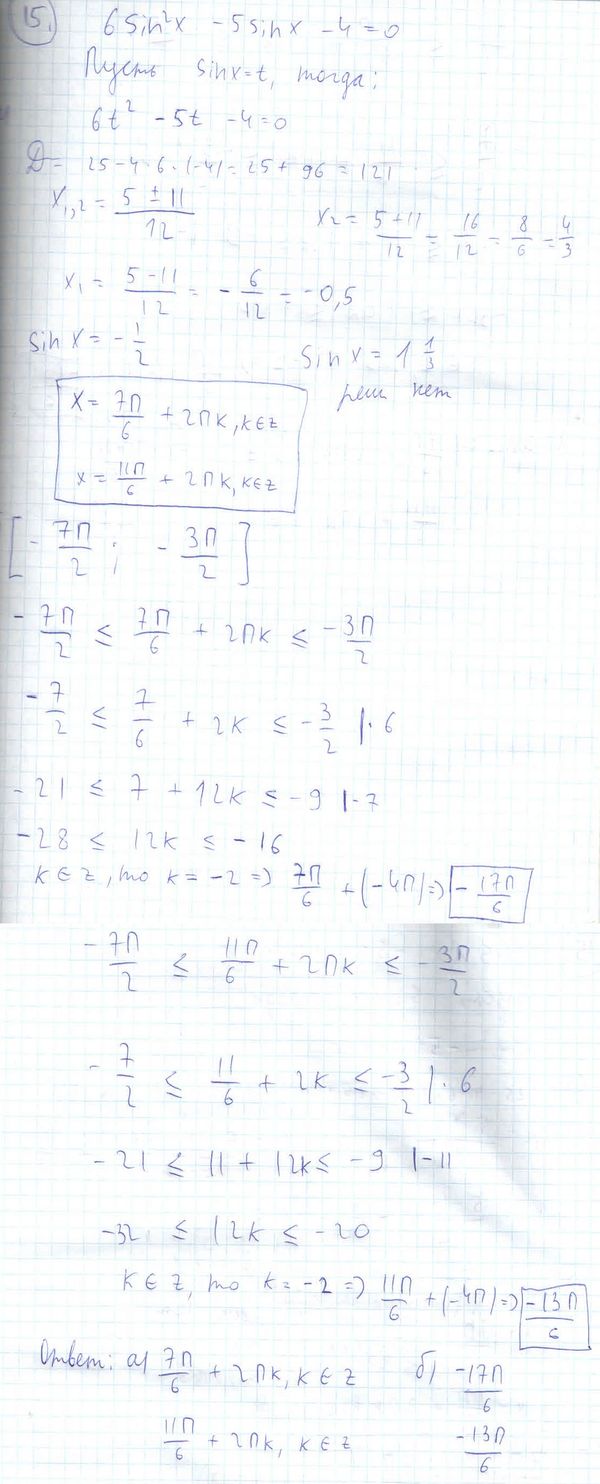 15. 6 sin²x - 5 sin x - 4 = 0
Пусть sin x = t, тогда:
6t² - 5t - 4 = 0
D = 25 - 4 · 6 · (-4) = 25 + 96 = 121
x₁,₂ = (5 ± 11)/12
x₂ = (5 + 11)/12 = 16/12 = 8/6 = 4/3
x₁ = (5 - 11)/12 = - 6/12 = -0,5
sin x = - 1/2
sin x = 1 1/3
реш нет
x = 7π/6 + 2πk, k ∈ z
x = 11π/6 + 2πk, k ∈ z
[- 7π/2 ; - 3π/2]
- 7π/2 ≤ 7π/6 + 2πk ≤ - 3π/2
- 7/2 ≤ 7/6 + 2k ≤ - 3/2 | · 6
-21 ≤ 7 + 12k ≤ -9 | -7
-28 ≤ 12k ≤ -16
k ∈ z, то k = -2 => 7π/6 + (-4π) => - 17π/6
- 7π/2 ≤ 11π/6 + 2πk ≤ - 3π/2
- 7/2 ≤ 11/6 + 2k ≤ - 3/2 | · 6
-21 ≤ 11 + 12k ≤ -9 | -11
-32 ≤ 12k ≤ -20
k ∈ z, то k = -2 => 11π/6 + (-4π) => -13π/6
Ответ: а) 7π/6 + 2πk, k ∈ z б) -17π/6
11π/6 + 2πk, k ∈ z -13π/6